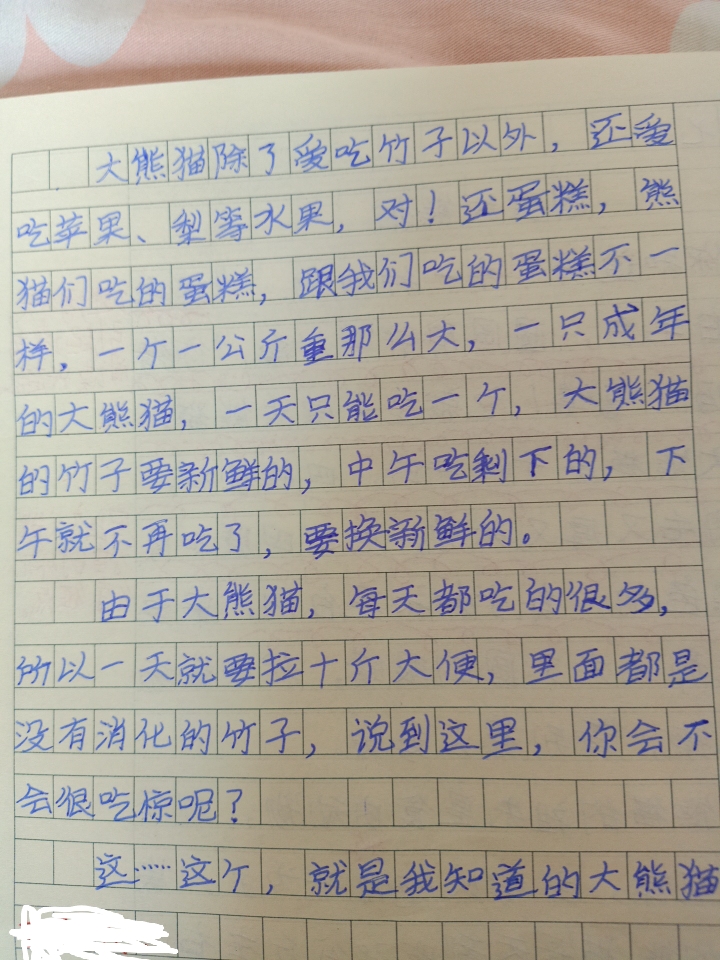 大熊猫除了爱吃竹子以外，还爱
吃苹果、梨等水果，对！还蛋糕，熊
猫们吃的蛋糕，跟我们吃的蛋糕不一
样，一个一公斤重那么大，一只成年
的大熊猫，一天只能吃一个，大熊猫
的竹子要新鲜的，中午吃剩下的，下
午就不再吃了，要换新鲜的。
由于大熊猫，每天都吃的很多，
所以一天就要拉十斤大便，里面都是
没有消化的竹子，说到这里，你会不
会很吃惊呢？
这……这个，就是我知道的大熊猫